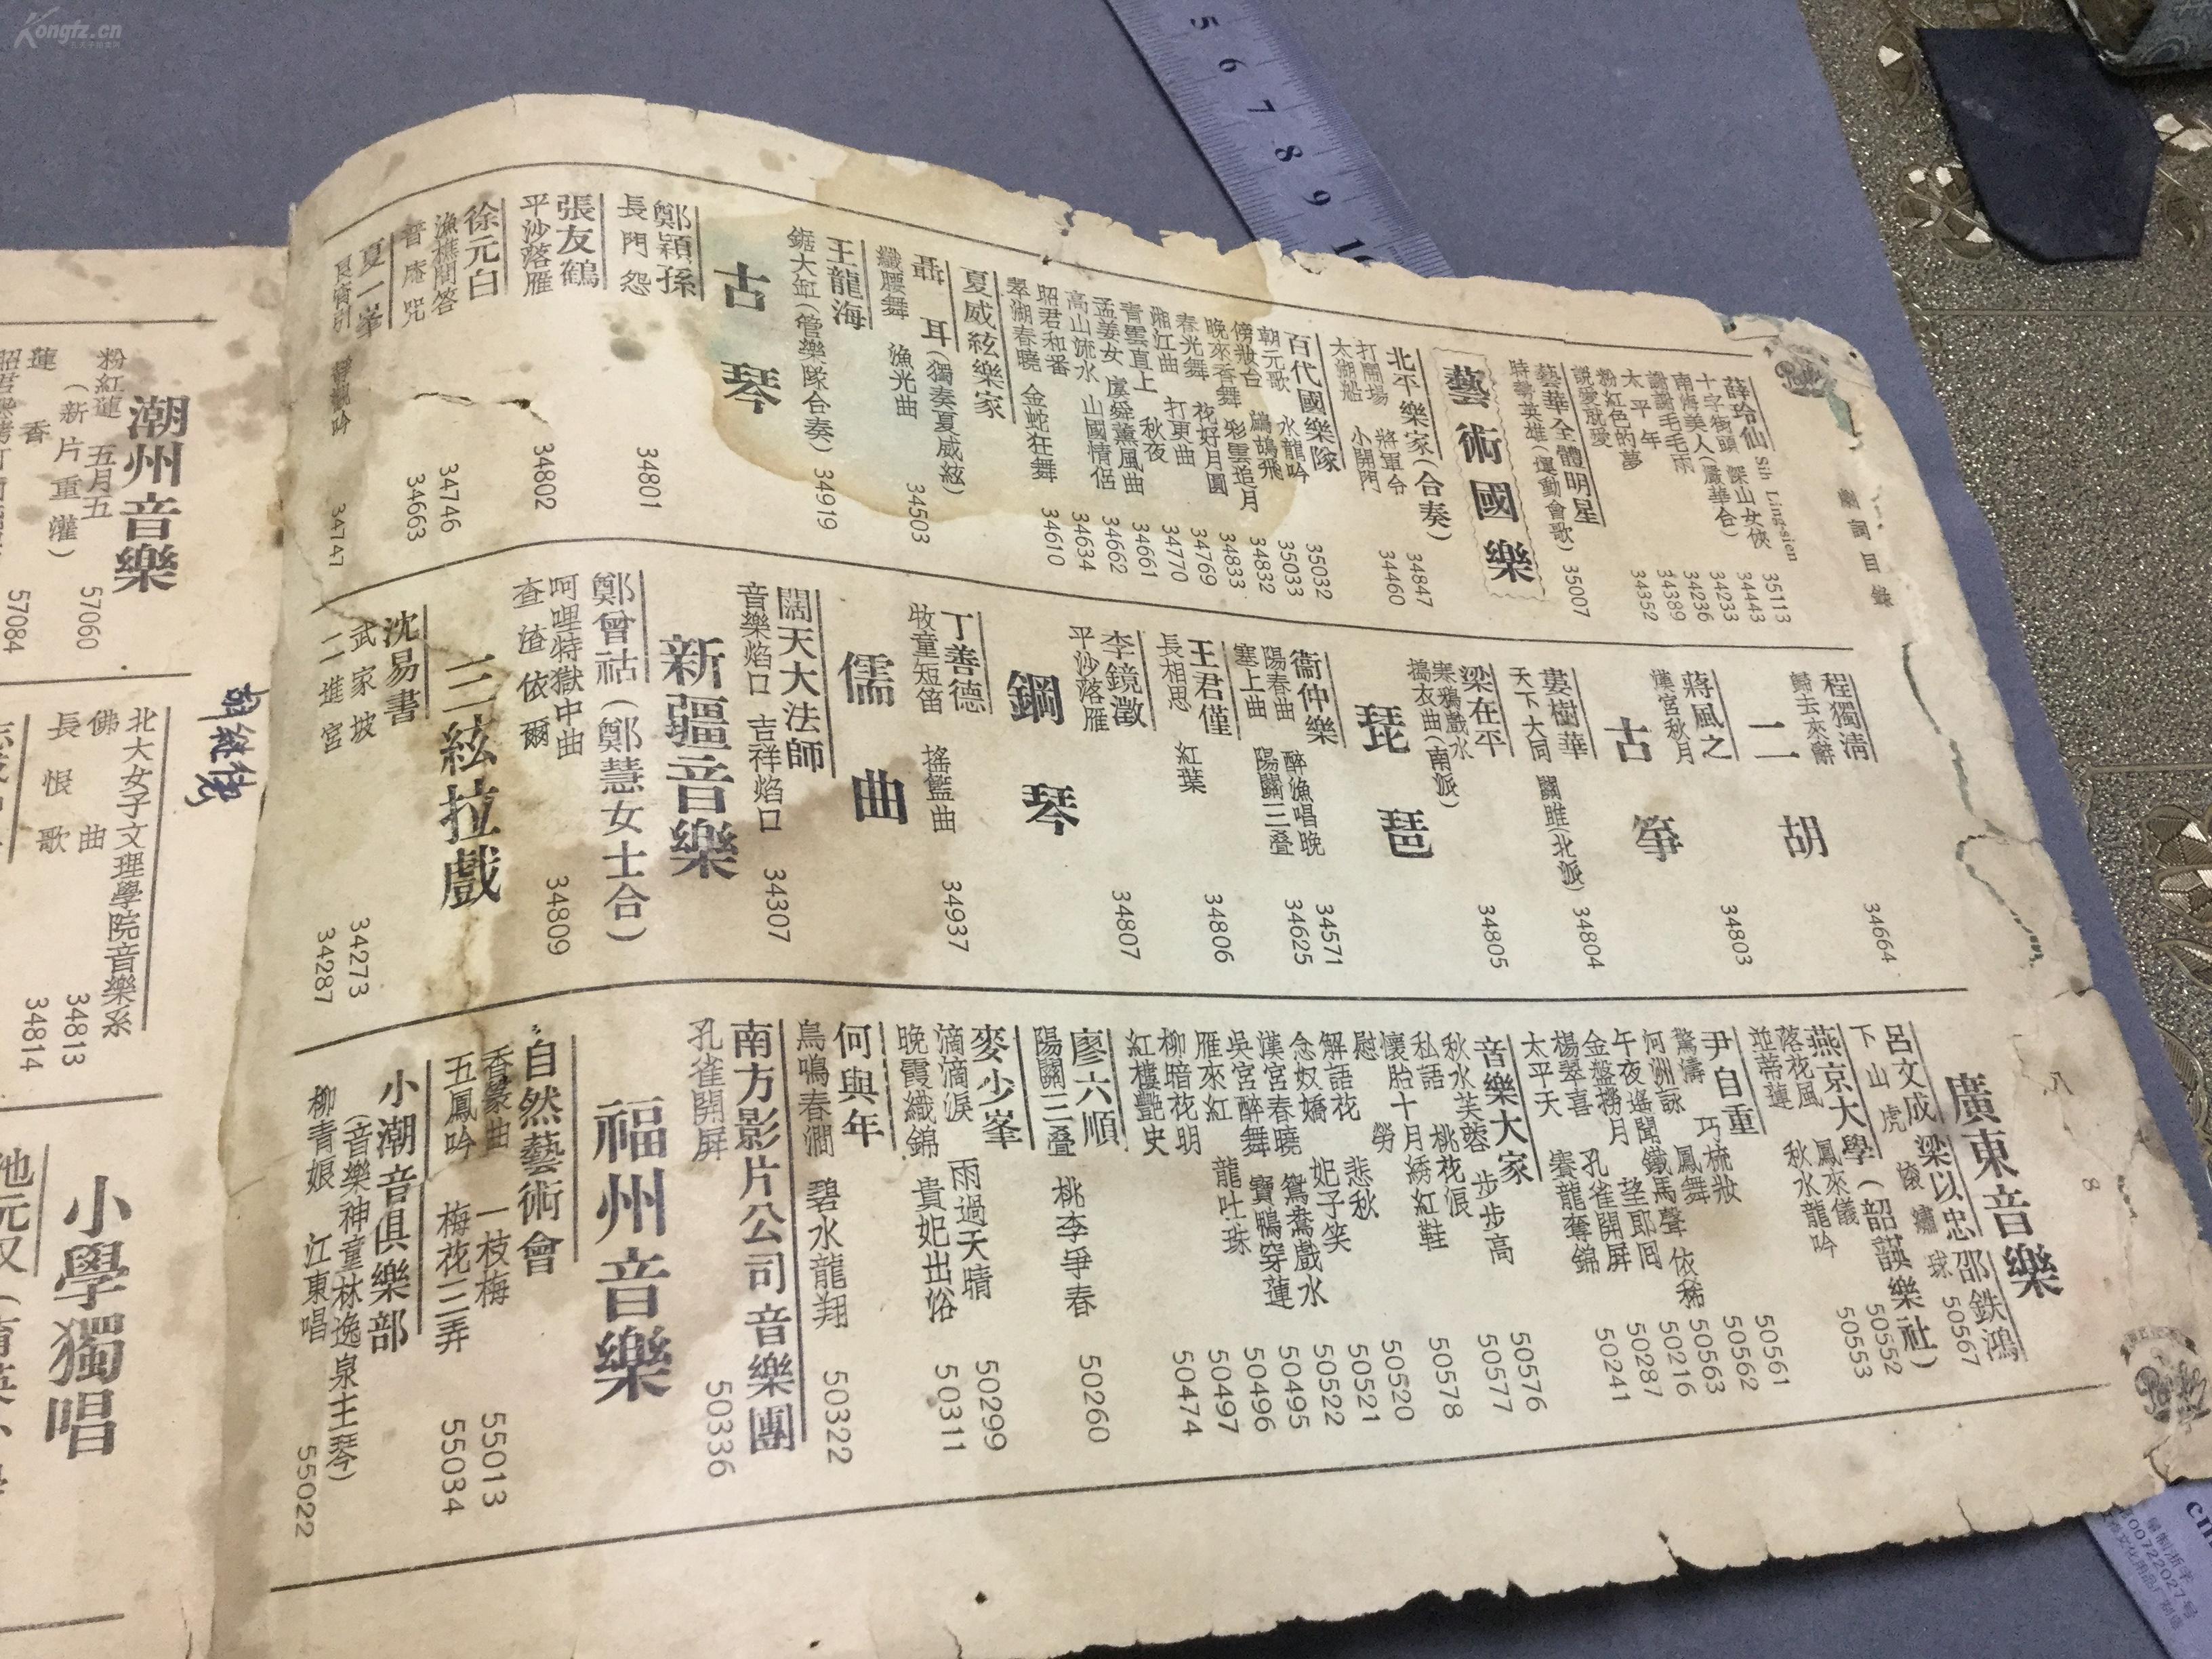 Kongfz.cn
5 6 7 8 9 10
劇詞目錄
薛玲仙 Sih Lingsien
十字街頭 深山女俠 35113
南海美人(嚴華合) 34443
謝謝毛毛雨 34233
太平年 34236
粉紅色的夢 34389
說愛就愛 34352
藝華全體明星
時勢英雄(運動會歌) 35007
藝術國樂
北平樂家(合奏)
打開場 將軍令 34847
太湖船 小開門 34460
百代國樂隊
朝元歌 水龍吟 35032
傍妝台 鷓鴣飛 35033
晚來香舞 彩雲追月 34832
春光舞 花好月圓 34833
湘江曲 打更曲 34769
青雲直上 秋夜 34770
孟姜女 虞舜薰風曲 34661
高山流水 山國情侶 34662
昭君和番 34634
翠湖春曉 金蛇狂舞 34610
夏威絃樂家
聶耳(獨奏夏威絃)
纖腰舞 漁光曲 34503
王龍海
鋸大缸(管樂隊合奏) 34919
古琴
鄭穎孫
長門怨 34801
張友鶴
平沙落雁 34802
徐元白
漁樵問答 34746
普庵咒 34663
夏一峯
良宵引 34747
程獨清
歸去來辭 34664
二胡
蔣風之
漢宮秋月 34803
古箏
婁樹華
天下大同 關雎(北派) 34804
梁在平
寒鴉戲水
搗衣曲(南派) 34805
琵琶
衞仲樂
陽春曲 醉漁唱晚 34571
塞上曲 陽關三叠 34625
王君僅
長相思 紅葉 34806
李鏡澂
平沙落雁 34807
鋼琴
丁善德
牧童短笛 搖籃曲 34937
儒曲
闊天大法師
音樂焰口 吉祥焰口 34307
新疆音樂
鄭曾祜(鄭慧女士合)
呵哩特獄中曲
查渣依爾 34809
三絃拉戲
沈易書
武家坡 34273
二進宮 34287
八 8
廣東音樂
呂文成 梁以忠 邵鉄鴻
下山虎 滾繡球 50567
燕京大學(韶韺樂社)
落花風 鳳來儀 50552
並蒂蓮 秋水龍吟 50553
尹自重
驚濤 巧梳妝 50561
河洲詠 鳳舞 依稀 50562
午夜遙聞鐵馬聲 50563
金盤撈月 望郎囘 50216
楊翠喜 孔雀開屏 50287
太平天 賽龍奪錦 50241
音樂大家
秋水芙蓉 步步高 50576
私語 桃花浪 50577
懷胎十月 綉紅鞋 50578
慰勞 悲秋 50520
解語花 妃子笑 50521
念奴嬌 鴛鴦戲水 50522
漢宮春曉 寶鴨穿蓮 50495
吳宮醉舞 龍吐珠 50496
雁來紅 50497
柳暗花明 50474
紅樓艷史
廖六順
陽關三叠 桃李爭春 50260
麥少峯
滴滴淚 雨過天晴 50299
晚霞織錦 貴妃出浴 50311
何與年
鳥鳴春澗 碧水龍翔 50322
南方影片公司音樂團
孔雀開屏 50336
福州音樂
自然藝術會
香篆曲 一枝梅 55013
五鳳吟 梅花三弄 55034
小潮音俱樂部
(音樂神童林逸泉主琴)
柳青娘 江東唱 55022
潮州音樂
粉紅蓮 五月五 57060
(新片重灌)
蓮香 57084
北大女子文理學院音樂系
佛曲 34813
長恨歌 34814
小學獨唱